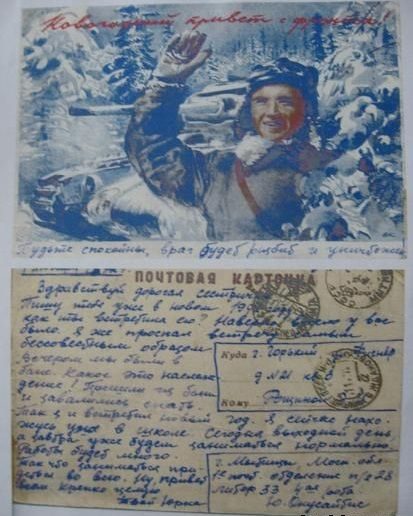 Новогодний привет с фронта!
Будьте спокойны, враг будет разбит и уничтожен
ПОЧТОВАЯ КАРТОЧКА
Здравствуй дорогая сестричка
Пишу тебе уже в новом 19
как ты встретила его? Наверно весело у вас
было. Я же проспал
бессовестным образом
Вечером мы были в
бане. Какое это наслаж-
дение! Пришли из бани
и завалились спать.
Так и встретил новый год. Я сейчас нахо-
жусь уже в школе. Сегодня выходной день
а завтра уже будем заниматься нормально
Работы будет много
так что заниматься при-
дется во всю. Ну привет
всем крепко целую
Твой Юрка
Куда г. Горький
д N21
Кому Рощиной
г. Мытищи Моск. обл
1е почт. отделение п/я 23
литер 33
Ю.